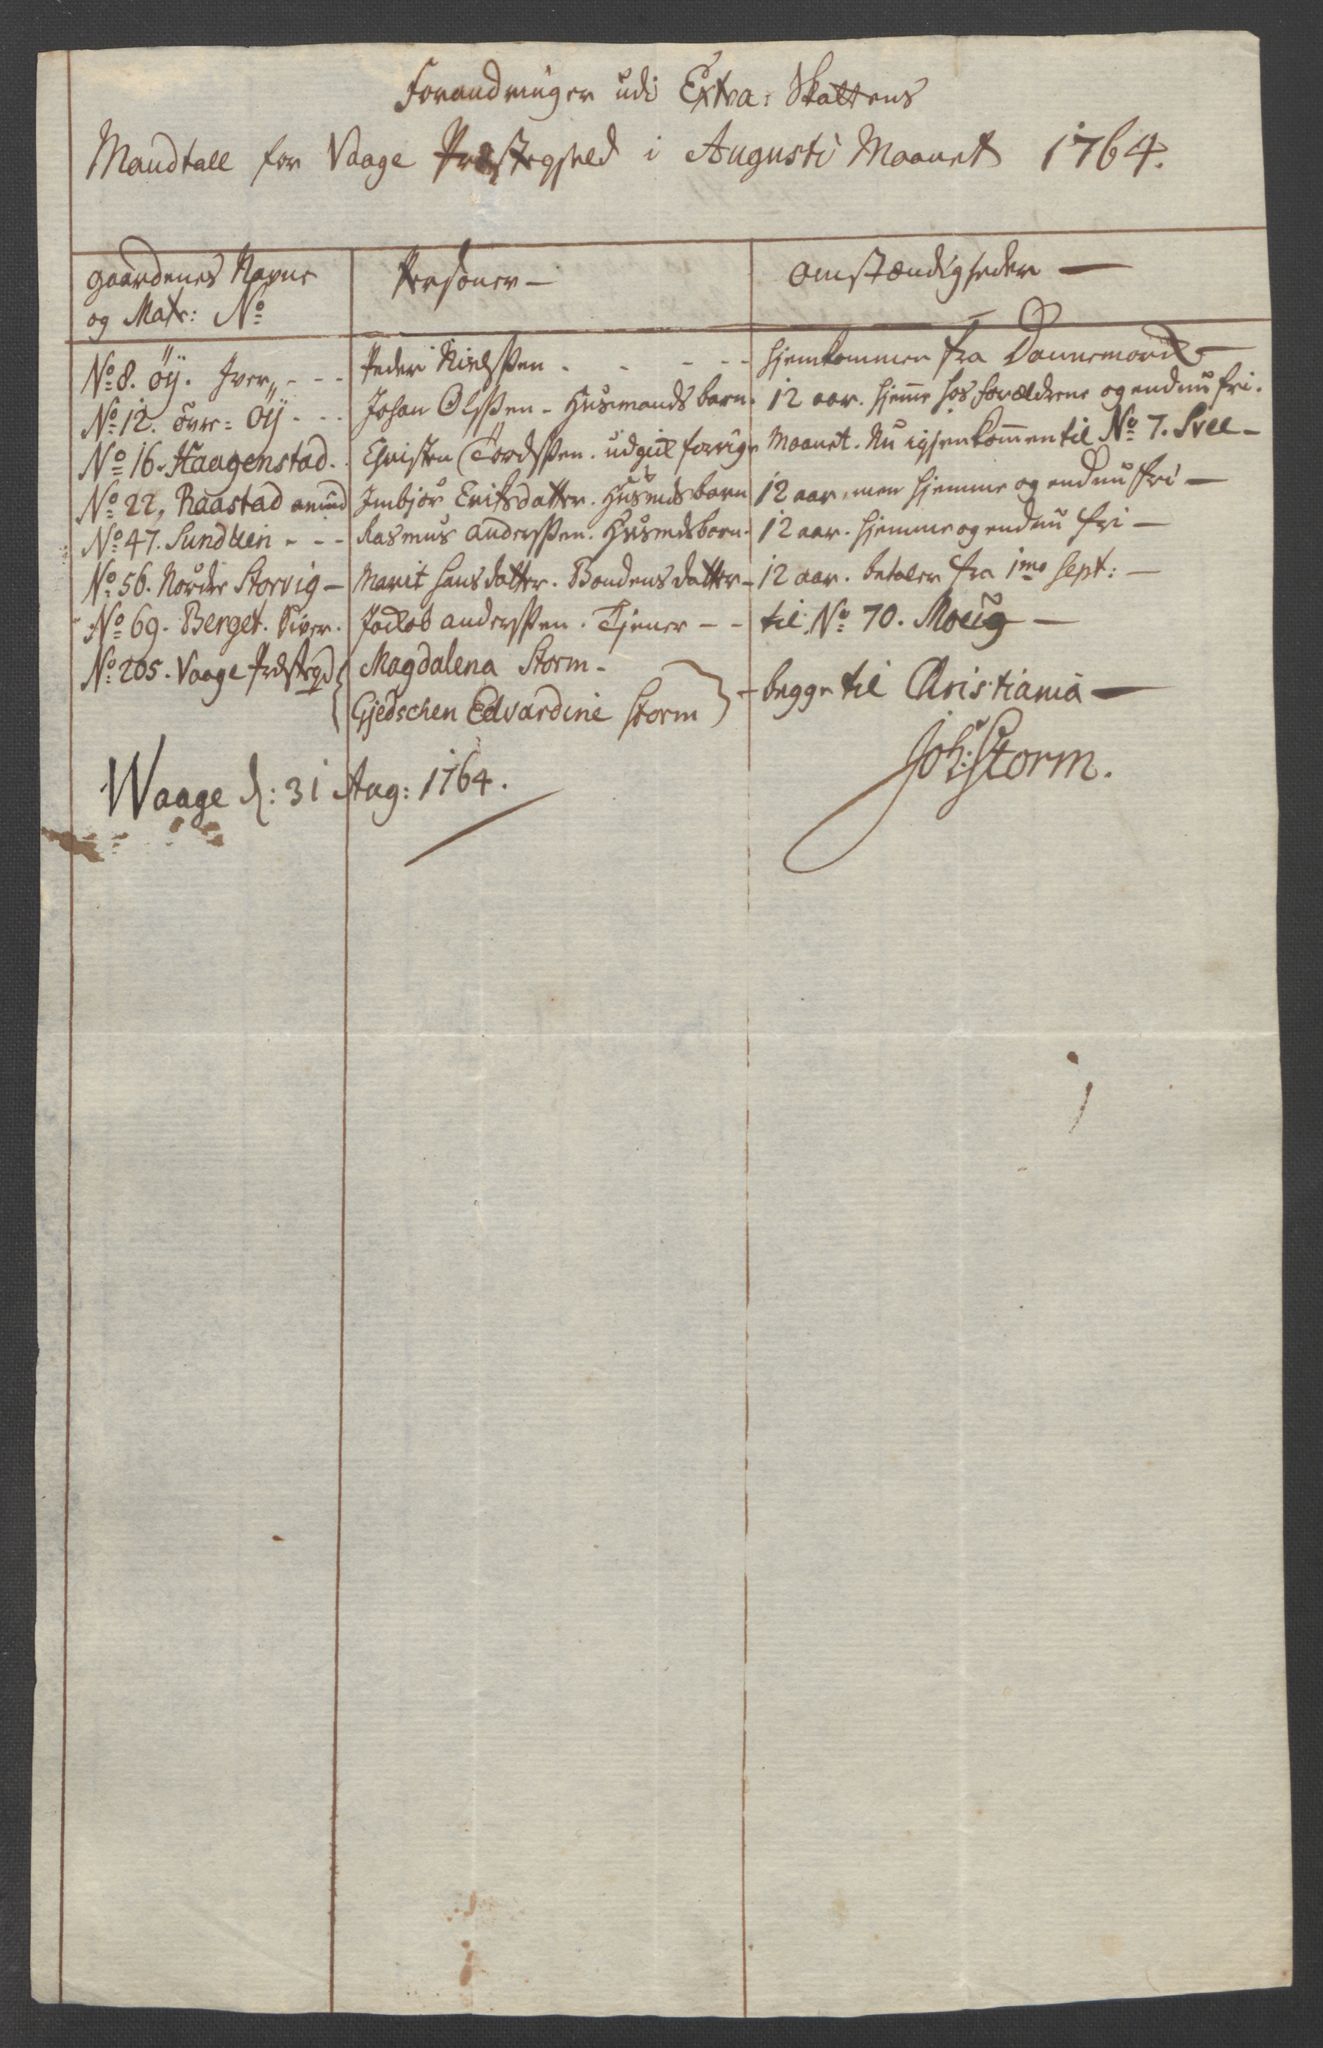 Forandringer udi Extra: Skattens
Mandtall for Vaage Præstegield i Augusti Maanet 1764.
gaardenes Navne
og Matr: No
Personer —
omstændigheder —
No 8. Öÿ. Iver, - - - Peder Nielsßen - - - - hjemkommen fra Dannemark —
No 12. övre = Öÿ - - - Johan Olsßen - Husmands barn. 12 aar. hjem̄e hos forældrene og endnu fri.
No 16. Haagenstad. Christen Tordsßen. udgik forrige Maanet. Nu igjenkom̄en til No 7. Svee —
No 22, Raastad amund Imbjör Eriksdatter. Husmdsbarn 12 aar, men hjemme og endnu fri —
No 47. Sundtein - - - Rasmus andersßen. Husmdsbarn. 12 aar. hjemme og endnu fri —
No 56. Nordre Storvig — Marit Hans datter. Bondens datter — 12 aar. betaler fra 1mo Sept: —
No 69. Berget. Siver. Jackob andersßen. Tjener - - til No 70. Moug —
No 205. Vaage Præstegd { Magdalena Storm -
Gjedschen Edvardine Storm } - begge til Christiania —
Waage d: 31 Aug: 1764.
Joh: Storm.